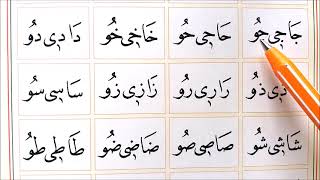 جَا جِي جُو حَا حِي حُو خَا خِي خُو دَا دِي دُو
ذِي ذُو رَا رِي رُو زَا زِي زُو سَا سِي سُو
شَا شِي شُو صَا صِي صُو ضَا ضِي ضُو طَا طِي طُو